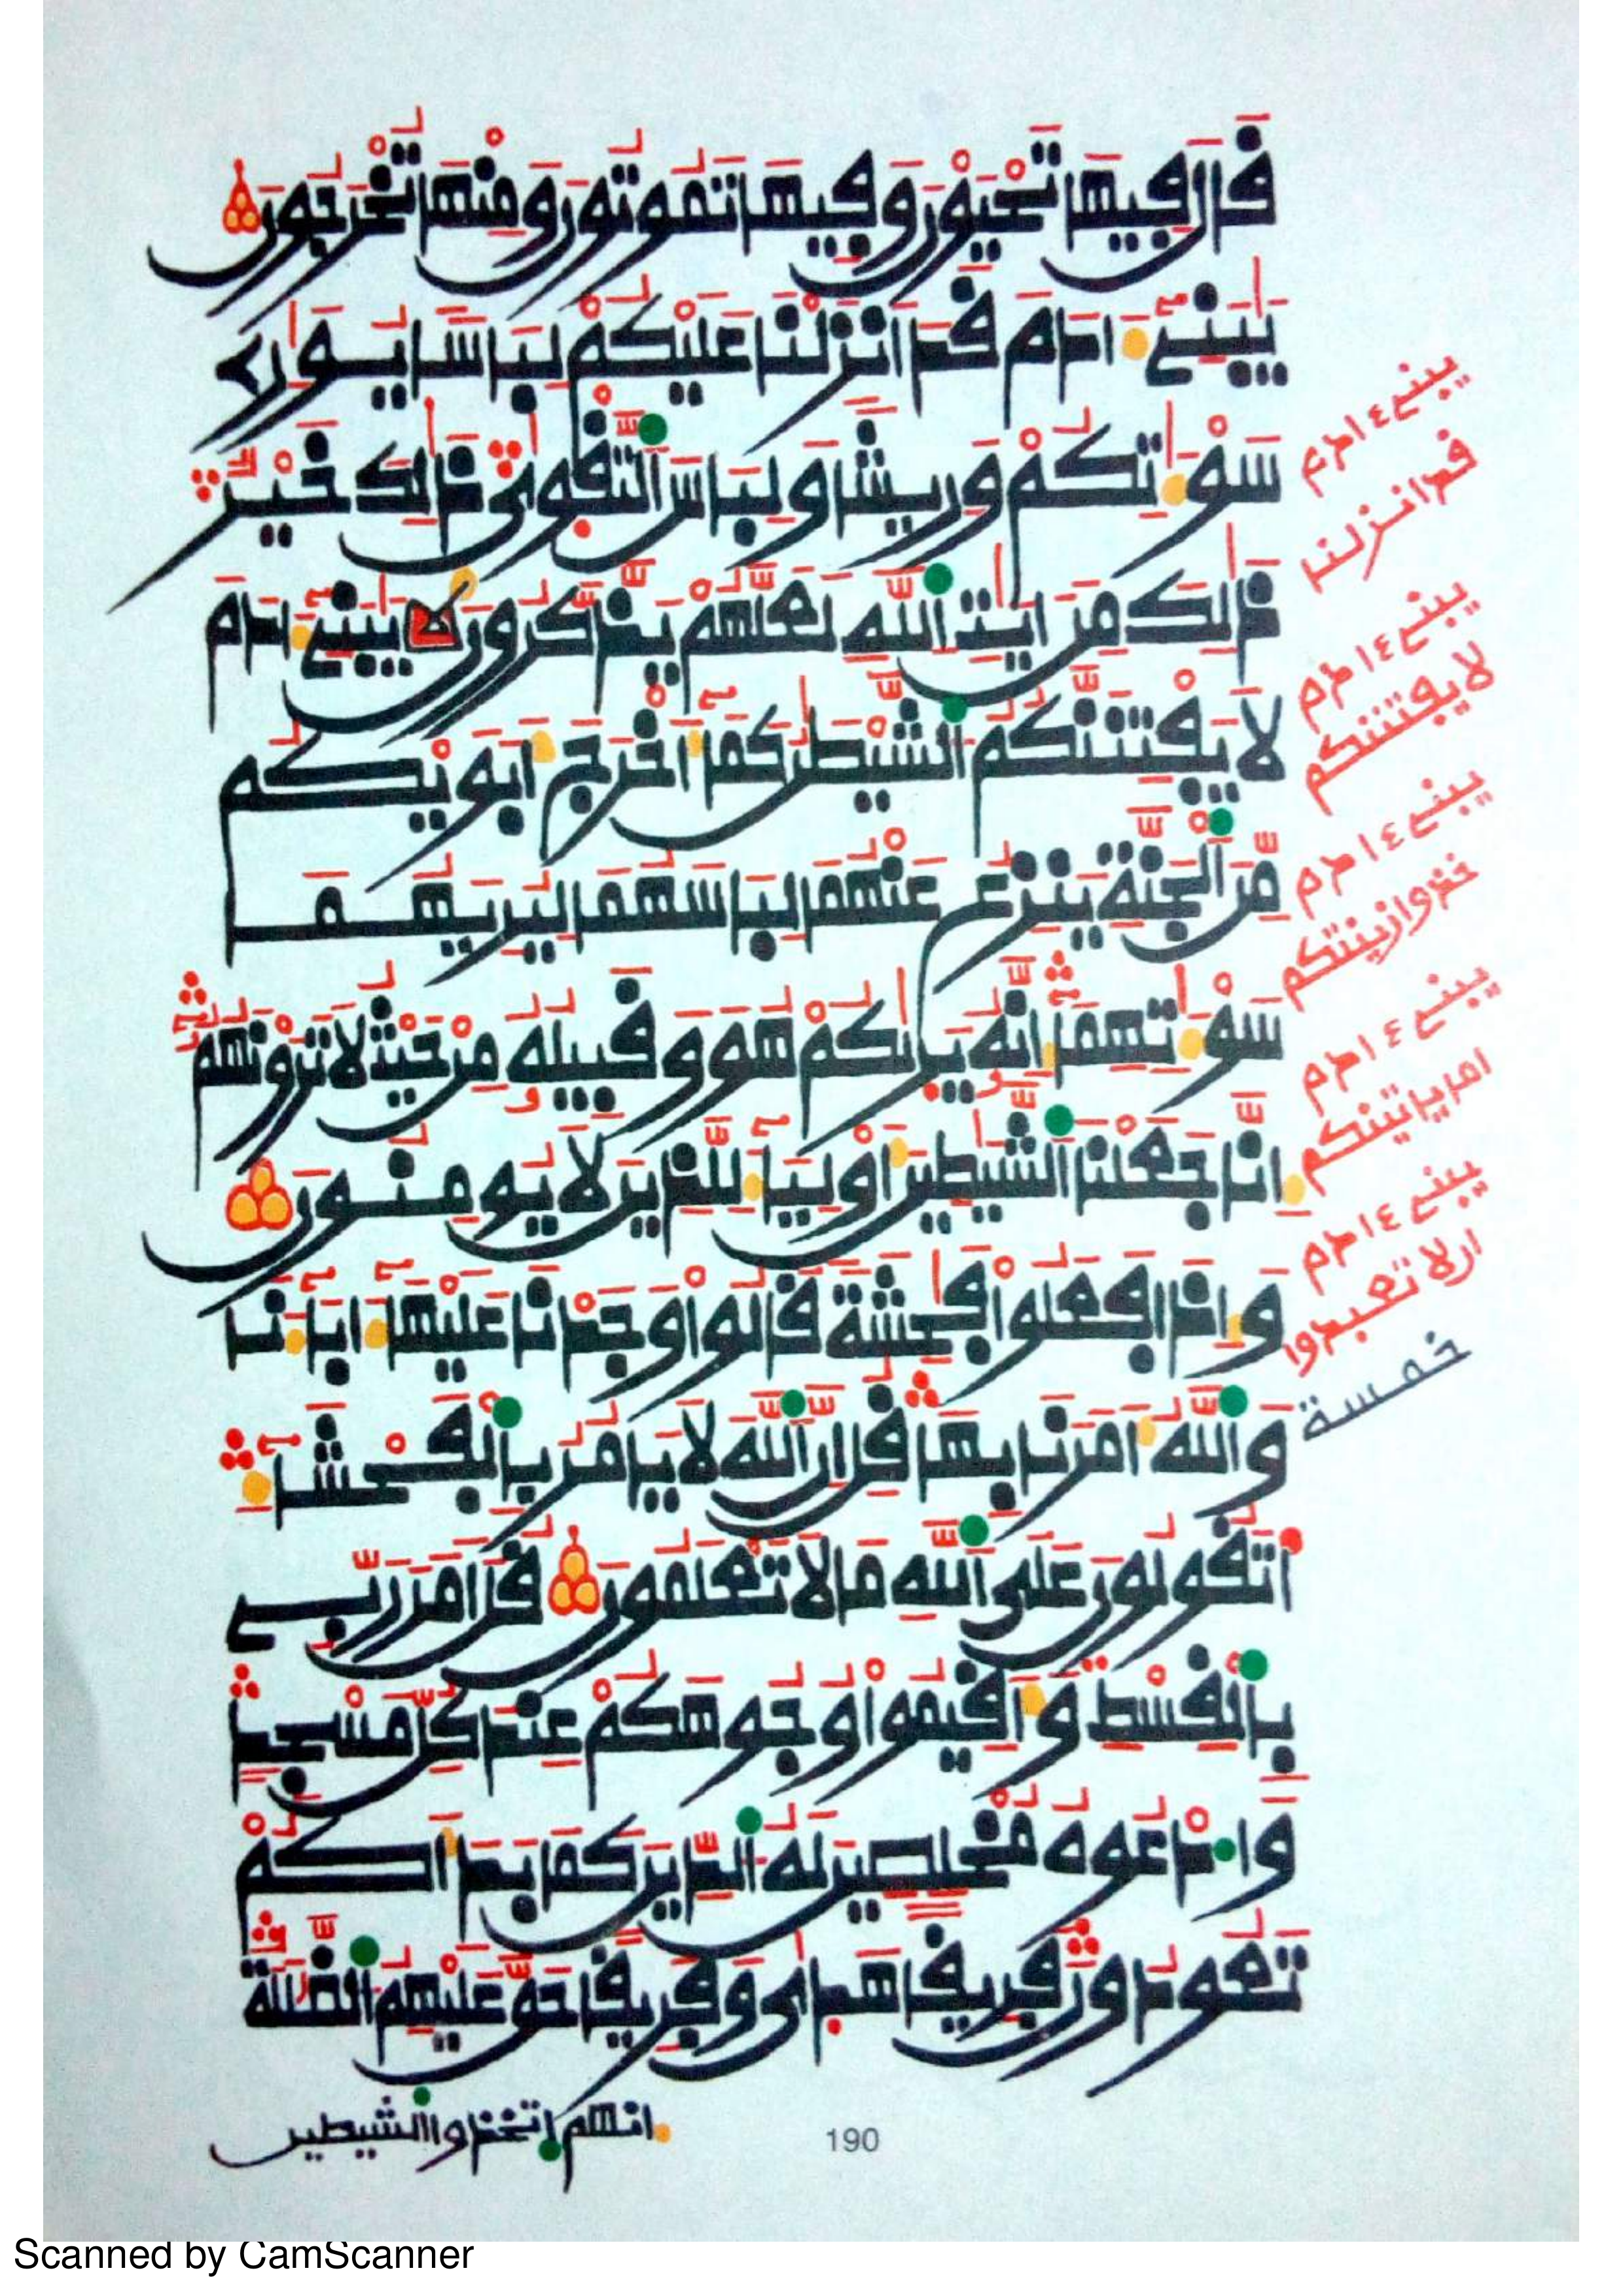 قَالَ فِيهَا تَحْيَوْنَ وَفِيهَا تَمُوتُونَ وَمِنْهَا تُخْرَجُونَ
يَٰبَنِےٓ ءَادَمَ قَدَ اَنزَلْنَا عَلَيْكُمْ لِبَاساً يُوَٰرِے
سَوْءَٰتِكُمْ وَرِيشاً وَلِبَاسَ اَلتَّقْوَىٰ ذَٰلِكَ خَيْرٌ
ذَٰلِكَ مِنَ اٰيَٰتِ اِللَّهِ لَعَلَّهُمْ يَذَّكَّرُونَ يَٰبَنِےٓ ءَادَمَ
لَا يَفْتِنَنَّكُمُ اُلشَّيْطَٰنُ كَمَآ أَخْرَجَ أَبَوَيْكُم
مِّنَ اَلْجَنَّةِ يَنزِعُ عَنْهُمَا لِبَاسَهُمَا لِيُرِيَهُمَا
سَوْءَٰتِهِمَآ إِنَّهُ يَرَىٰكُمْ هُوَ وَقَبِيلُهُ مِنْ حَيْثُ لَا تَرَوْنَهُمُ
إِنَّا جَعَلْنَا اَلشَّيَٰطِينَ أَوْلِيَآءَ لِلَّذِينَ لَا يُومِنُونَ
وَإِذَا فَعَلُواْ فَٰحِشَةً قَالُواْ وَجَدْنَا عَلَيْهَآ ءَابَآءَنَا
وَاللَّهُ أَمَرَنَا بِهَا قُلِ انَّ اَللَّهَ لَا يَامُرُ بِالْفَحْشَآءِ
أَتَقُولُونَ عَلَى اَللَّهِ مَا لَا تَعْلَمُونَ قُلَ اَمَرَ رَبِّے
بِالْقِسْطِ وَأَقِيمُواْ وُجُوهَكُمْ عِندَ كُلِّ مَسْجِدٍ
وَادْعُوهُ مُخْلِصِينَ لَهُ اُلدِّينَ كَمَا بَدَأَكُمْ
تَعُودُونَ فَرِيقاً هَدَىٰ وَفَرِيقاً حَقَّ عَلَيْهِمُ اُلضَّلَٰلَةُ
إنهم اتخذوا الشيطين
يبنے ءادم
قد انزلنا
يبنے ءادم
لا يفتننكم
يبنے ءادم
خذوا زينتكم
يبنے ءادم
اما ياتينكم
يبنے ءادم
ان لا تعبدوا
خمسة
190
Scanned by CamScanner